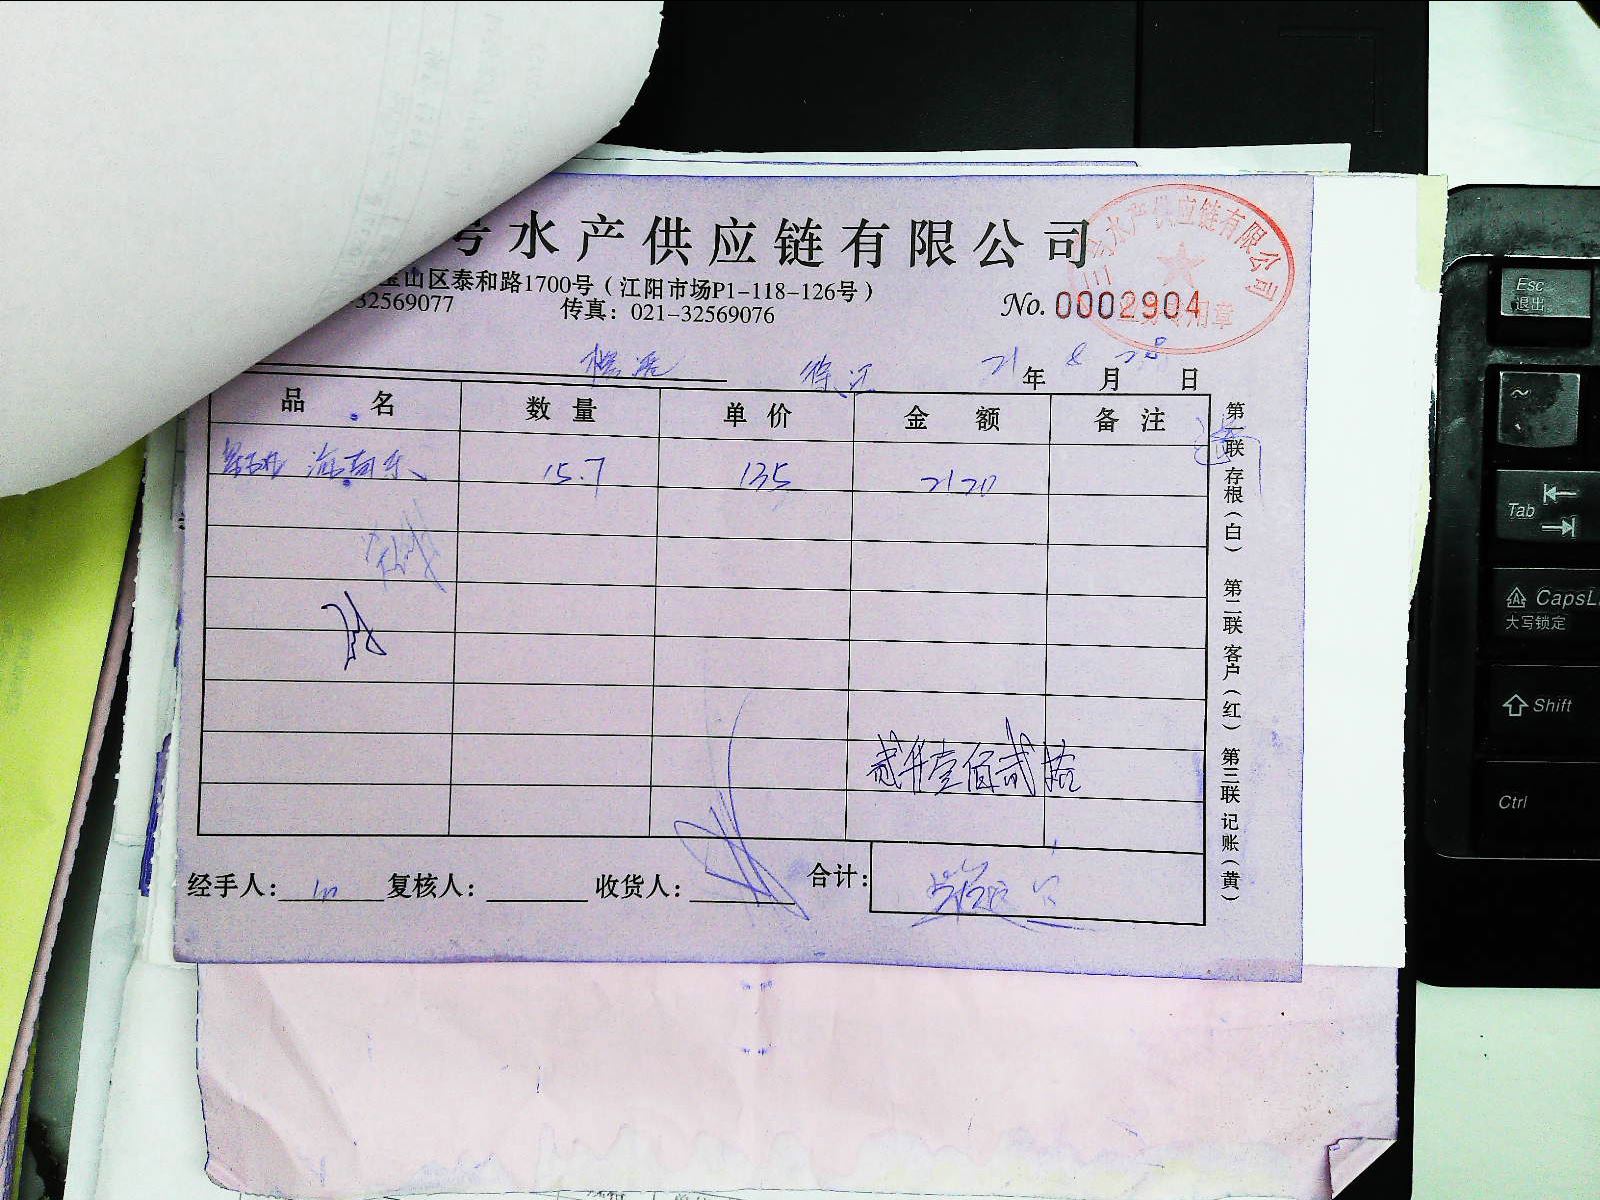 号水产供应链有限公司
宝山区泰和路1700号（江阳市场P1-118-126号）
32569077 传真：021-32569076
No. 0002904
水产供应链有限公司
用章
21年8月28日
品名 数量 单价 金额 备注
15.7 135 2120
贰仟壹佰贰拾
经手人： 复核人： 收货人： 合计：
第一联 存根（白） 第二联 客户（红） 第三联 记账（黄）
Esc
退出
~
Tab
CapsL
大写锁定
Shift
Ctrl